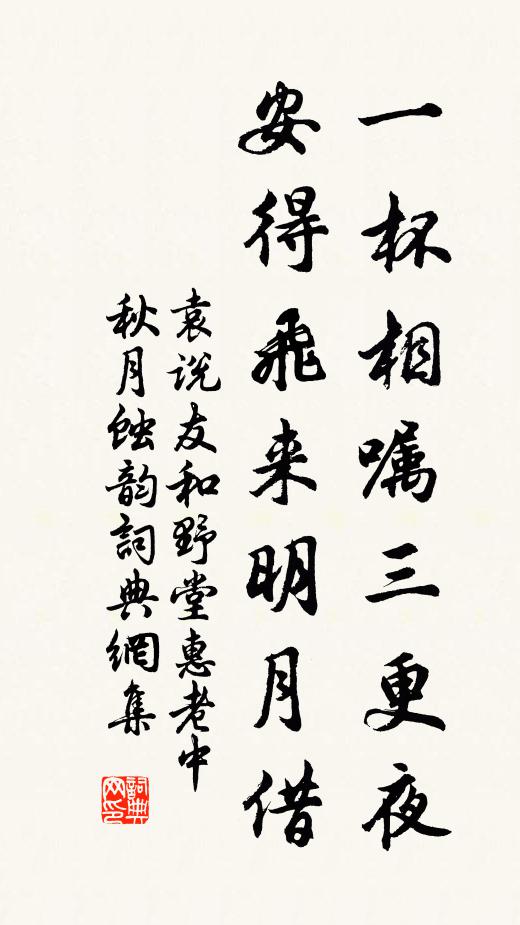 一杯相嘱三更夜
安得飛来明月借
袁说友和野堂惠老中
秋月蚀韵詞典網集
詞典网印